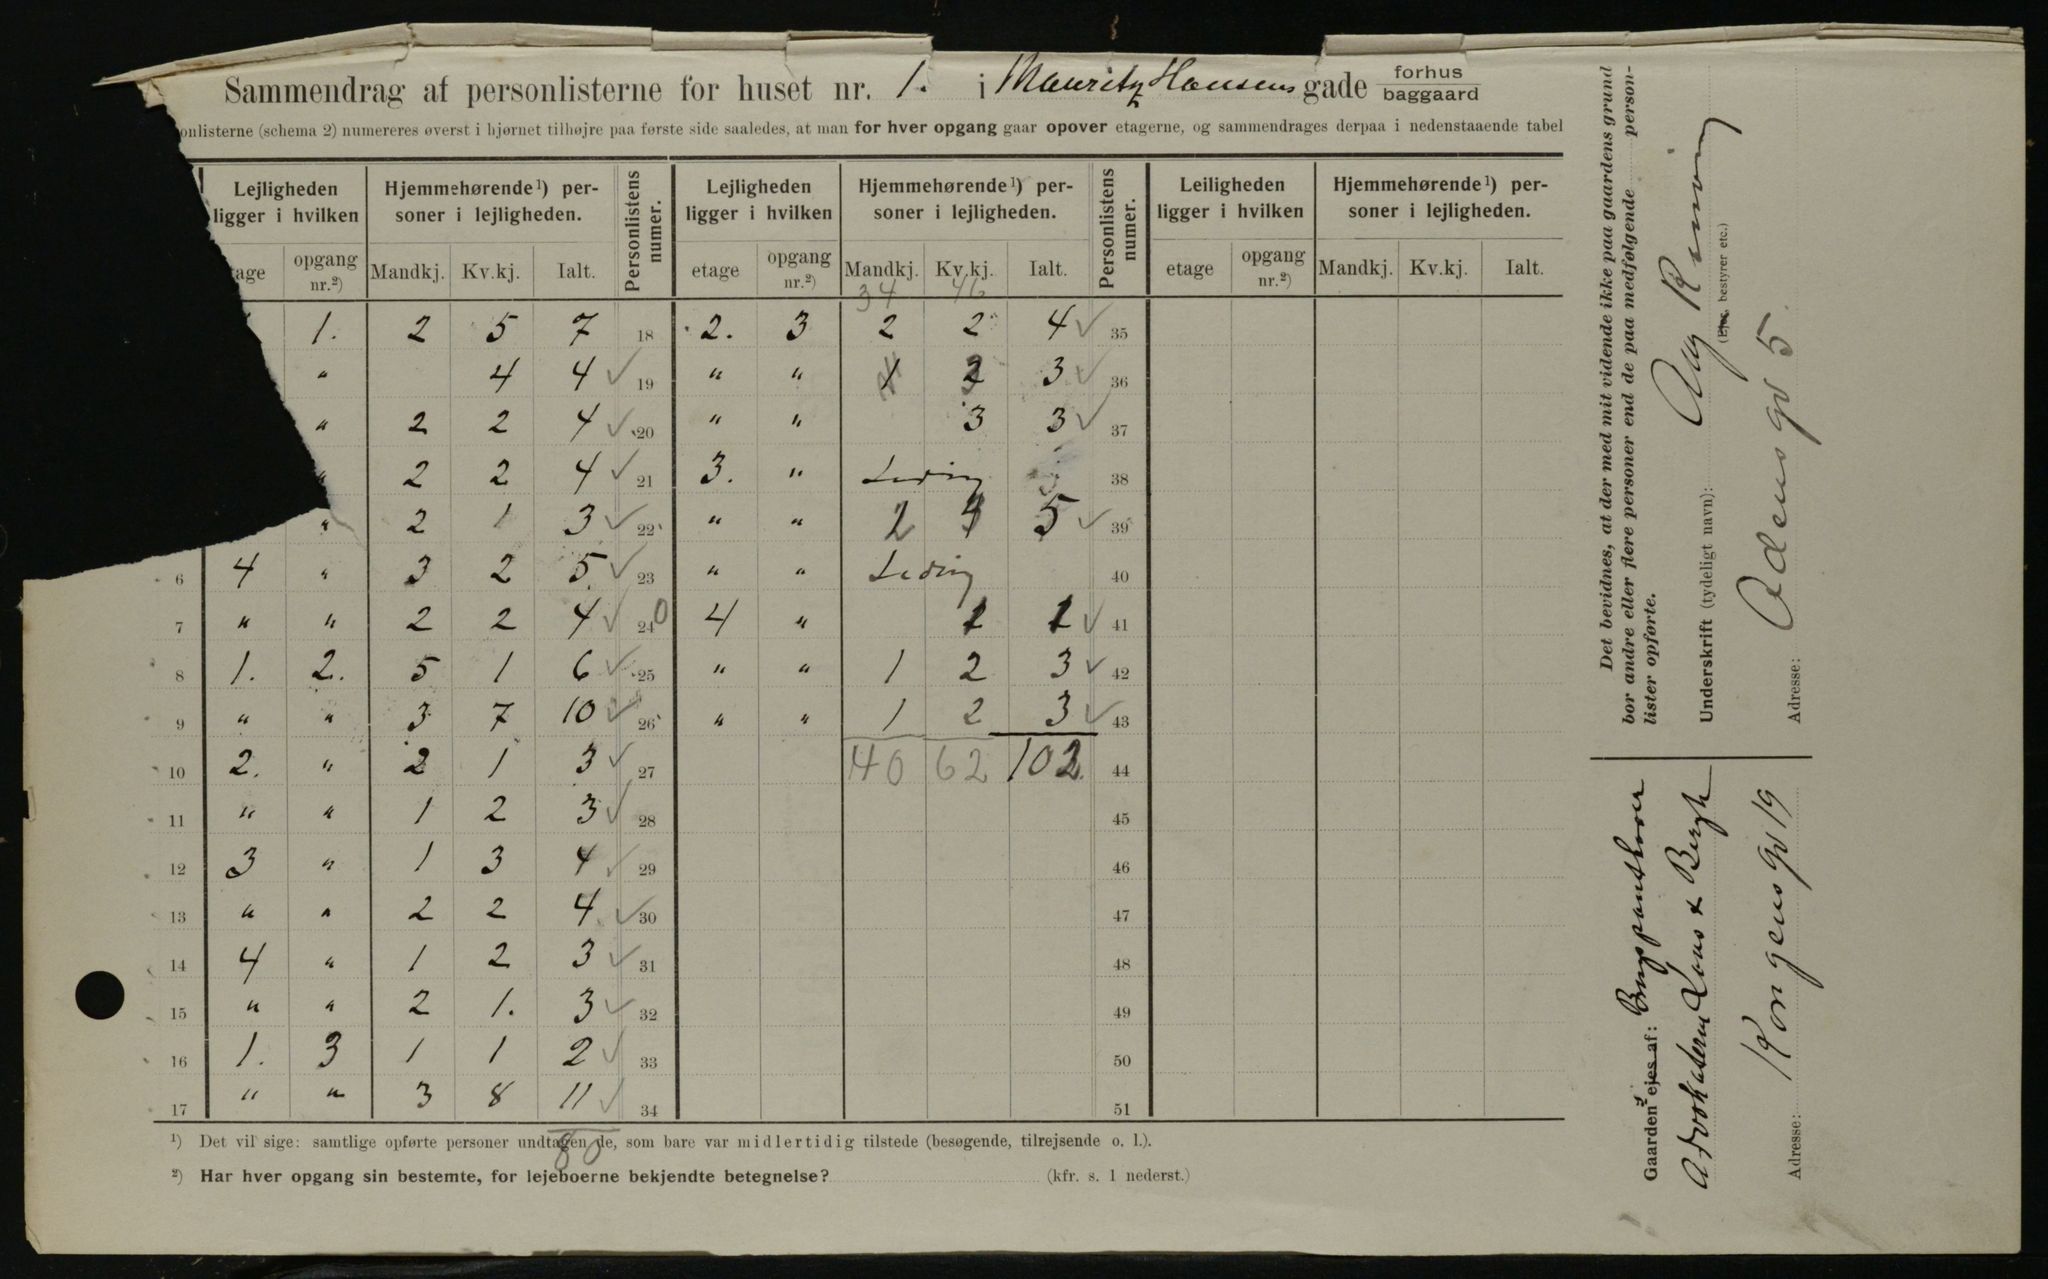 Sammendrag af personlisterne for huset nr. 1. i Mauritz Hansens gade forhus baggaard
onlisterne (schema 2) numereres øverst i hjørnet tilhøjre paa første side saaledes, at man for hver opgang gaar opover etagerne, og sammendrages derpaa i nedenstaaende tabel
Lejligheden ligger i hvilken | Hjemmehørende¹) personer i lejligheden. | Personlistens numer. | Lejligheden ligger i hvilken | Hjemmehørende¹) personer i lejligheden. | Personlistens numer. | Leiligheden ligger i hvilken | Hjemmehørende¹) personer i lejligheden.
tage | opgang nr.²) | Mandkj. | Kv.kj. | Ialt. | etage | opgang nr.²) | Mandkj. | Kv.kj. | Ialt. | etage | opgang nr.²) | Mandkj. | Kv.kj. | Ialt.
34 46
1. 2 5 7 18 2. 3 2 2 4 ✓ 35
" 4 4 ✓ 19 " " 1 2 3 ✓ 36
" 2 2 4 ✓ 20 " " 3 3 ✓ 37
" 2 2 4 ✓ 21 3. " Ledig 38
" 2 1 3 ✓ 22 " " 2 5 ✓ 39
6 4 " 3 2 5 ✓ 23 " " Ledig 40
7 " " 2 2 4 ✓ 24 0 4 " 1 1 ✓ 41
8 1. 2. 5 1 6 ✓ 25 " " 1 2 3 ✓ 42
9 " " 3 7 10 ✓ 26 " " 1 2 3 ✓ 43
10 2. " 2 1 3 ✓ 27 40 62 102. 44
11 " " 1 2 3 ✓ 28 45
12 3 " 1 3 4 ✓ 29 46
13 " " 2 2 4 ✓ 30 47
14 4 " 1 2 3 ✓ 31 48
15 " " 2 1. 3 ✓ 32 49
16 1. 3 1 1 2 ✓ 33 50
17 " " 3 8 11 ✓ 34 51
80
¹) Det vil sige: samtlige opførte personer undtagen de, som bare var midlertidig tilstede (besøgende, tilrejsende o. l.).
²) Har hver opgang sin bestemte, for lejeboerne bekjendte betegnelse? (kfr. s. 1 nederst.)
Det bevidnes, at der med mit vidende ikke paa gaardens grund
bor andre eller flere personer end de paa medfølgende person-
lister opførte.
Underskrift (tydeligt navn): Aug
(Ejer, bestyrer etc.)
Adresse: Odensgd 5.
Gaarden ejes af: Brugspanthaver
Advokaterne & Bergh
Adresse: Kongensgd 19